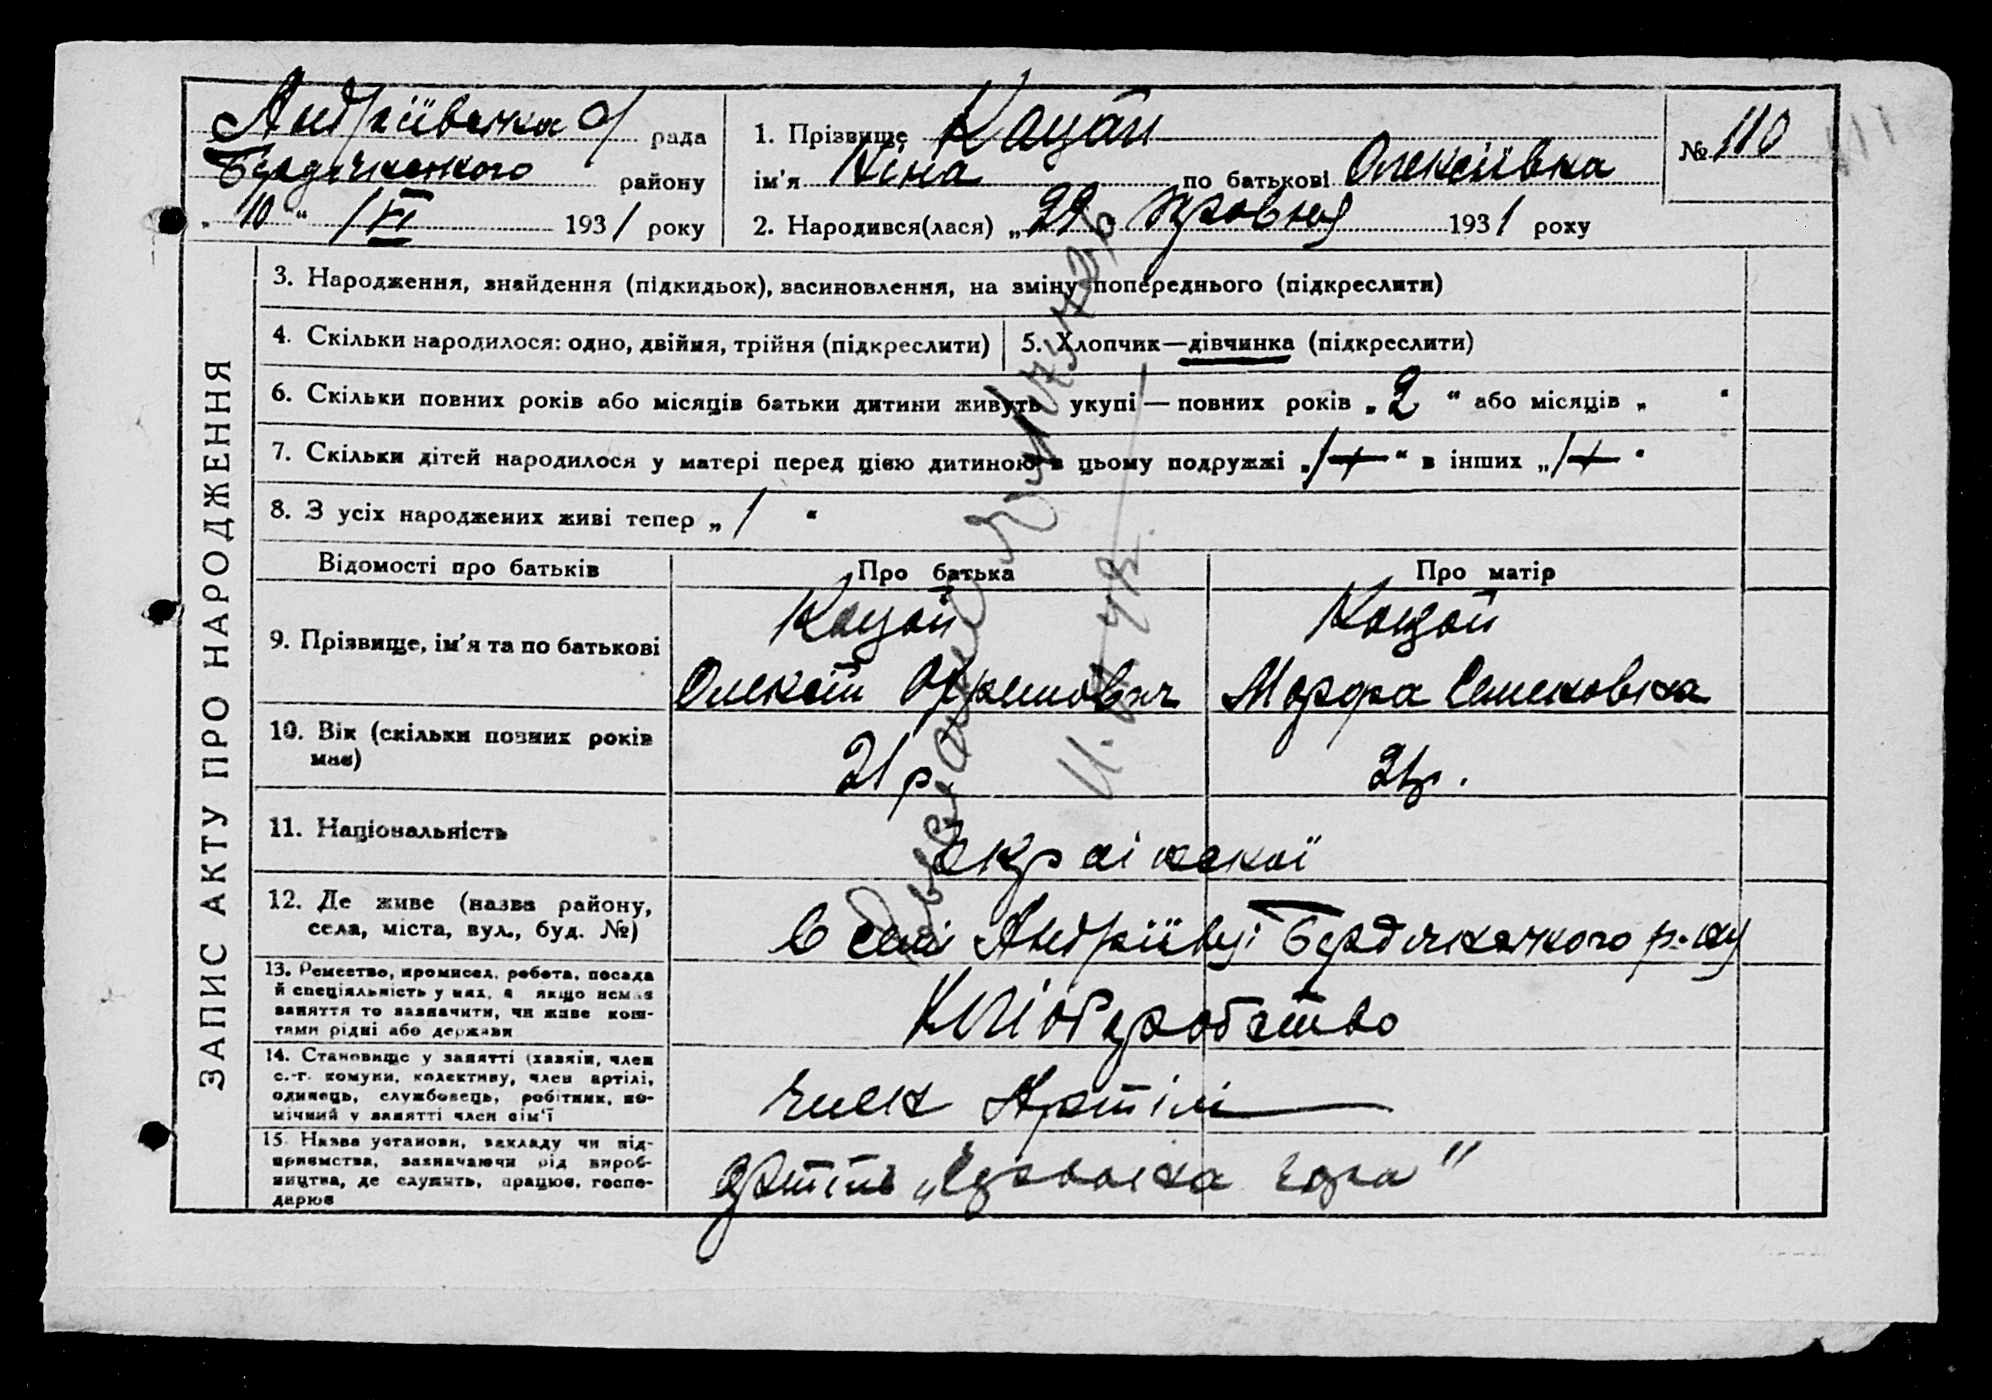 Андріївська с/ рада
Бердичівського району
„10“ /VI 1931 року
1. Прізвище Кацай
ім'я Ніна по батькові Олексіївна
2. Народився(лася) „29 травня 1931 року
№ 110
ЗАПИС АКТУ ПРО НАРОДЖЕННЯ
3. Народження, знайдення (підкидьок), засиновлення, на зміну попереднього (підкреслити)
4. Скільки народилося: одно, двійня, трійня (підкреслити)
5. Хлопчик—дівчинка (підкреслити)
6. Скільки повних років або місяців батьки дитини живуть укупі — повних років „2“ або місяців „ “
7. Скільки дітей народилося у матері перед цією дитиною в цьому подружжі „/ “ в інших „/ “
8. З усіх народжених живі тепер „/ “
Відомості про батьків
Про батька
Про матір
9. Прізвище, ім'я та по батькові
Кацай
Олексій
Кацай
Марфа Семеновна
10. Вік (скільки повних років
має)
21 р
21р.
11. Національність
української
12. Де живе (назва району,
села, міста, вул., буд. №)
в селі Андріївці Бердичівського р-ну
13. Ремество, промисел, робота, посада
й спеціяльність у них, а якщо немає
заняття то зазначити, чи живе кош-
тами рідні або держави
Хліборобство
14. Становище у занятті (хазяїн, член
с.-г. комуни, колективу, член артілі,
одинець, службовець, робітник, по-
мічний у занятті член сім'ї
член Артілі
15. Назва установи, закладу чи під-
приємства, зазначаючи рід вироб-
ництва, де служить, працює, госпо-
дарює
артіль „Червона зоря"